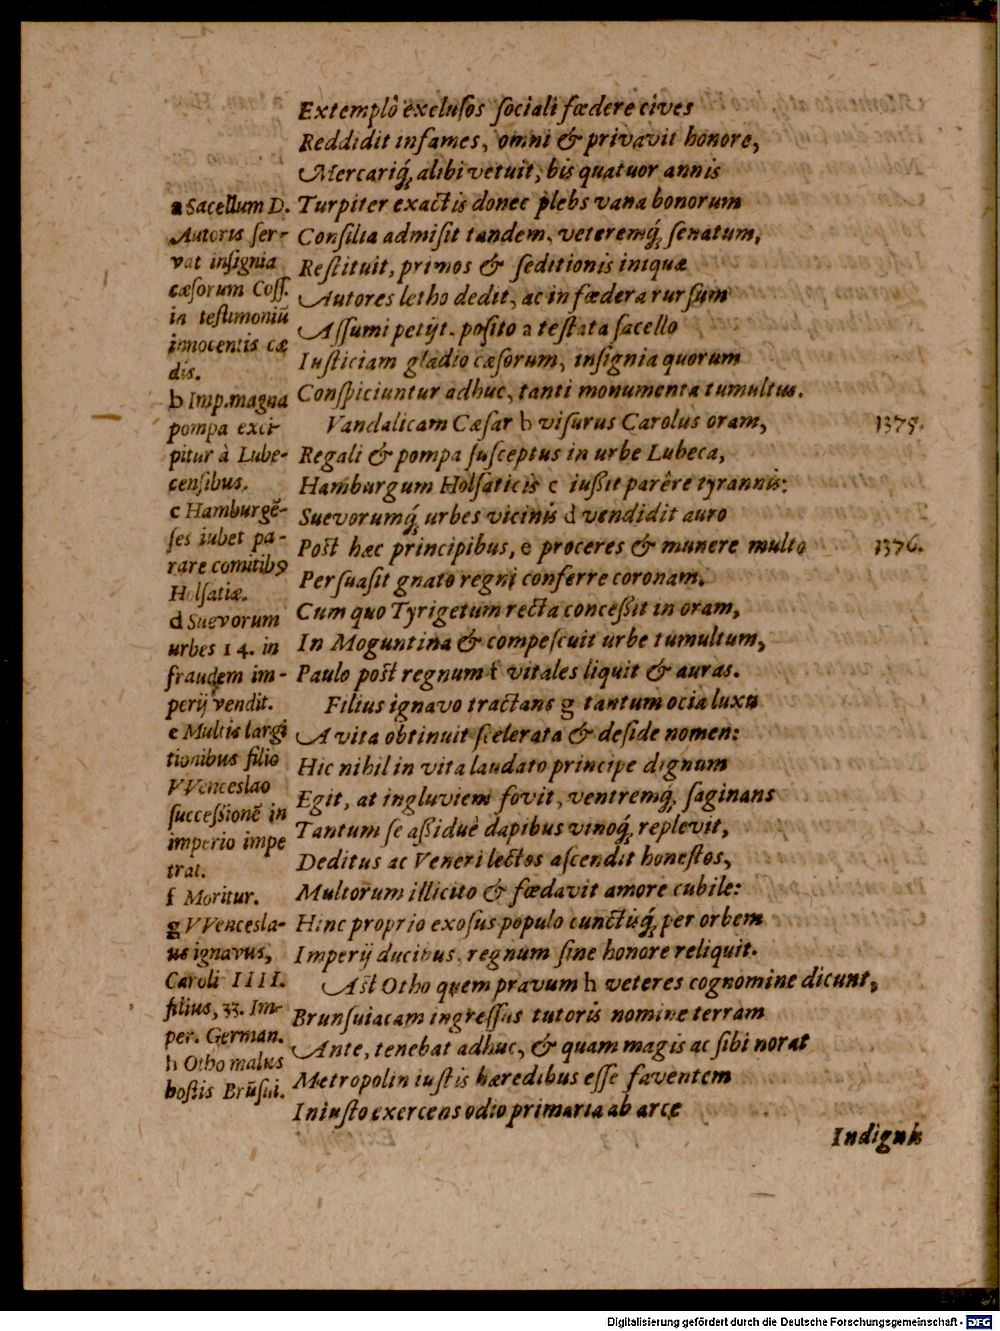 Extemplò exclusos sociali fœdere cives
Reddidit infames, omni & privavit honore,
Mercariq́; alibi vetuit, bis quatuor annis
Turpiter exactis donec plebs vana bonorum
Consilia admisit tandem, veteremq́; senatum,
Restituit, primos & seditionis iniquæ
Autores letho dedit, ac in fœdera rursum
Assumi petijt. posito a testata sacello
Iusticiam gladio cæsorum, insignia quorum
Conspiciuntur adhuc, tanti monumenta tumultus.
Vandalicam Cæsar b visurus Carolus oram,
1375.
Regali & pompa susceptus in urbe Lubeca,
Hamburgum Holsaticis c iußit parêre tyrannis:
Suevorumq́; urbes vicinis d vendidit auro
Post hæc principibus, e proceres & munere multo
1376.
Persuasit gnato regni conferre coronam.
Cum quo Tyrigetum recta conceßit in oram,
In Moguntina & compescuit urbe tumultum,
Paulo post regnum f vitales liquit & auras.
Filius ignavo tractans g tantum ocia luxu
A vita obtinuit scelerata & deside nomen:
Hic nihil in vita laudato principe dignum
Egit, at ingluviem fovit, ventremq́; saginans
Tantum se aßiduè dapibus vinoq́; replevit,
Deditus ac Veneri lectos ascendit honestos,
Multorum illicito & fœdavit amore cubile:
Hinc proprio exosus populo cunctisq́; per orbem
Imperij ducibus, regnum sine honore reliquit.
Ast Otho quem pravum h veteres cognomine dicunt,
Brunsuiacam ingressus tutoris nomine terram
Ante, tenebat adhuc, & quam magis ac sibi norat
Metropolin iustis hæredibus esse faventem
Iniusto exercens odio primaria ab arce
Indignis
a Sacellum D.
Autoris ser-
vat insignia
cæsorum Coss.
in testimoniũ
innocentis cæ
dis.
b Imp. magna
pompa exci-
pitur à Lube-
censibus.
c Hamburgẽ-
ses iubet pa-
rere comitibꝰ
Holsatiæ.
d Suevorum
urbes 14. in
fraudem im-
perij vendit.
e Multis largi
tionibus filio
VVenceslao
successionẽ in
imperio impe
trat.
f Moritur.
g VVencesla-
us ignavus,
Caroli IIII.
filius, 33. Im-
per. German.
h Otho malus
hostis Brũsui.
Digitalisierung gefördert durch die Deutsche Forschungsgemeinschaft - DFG